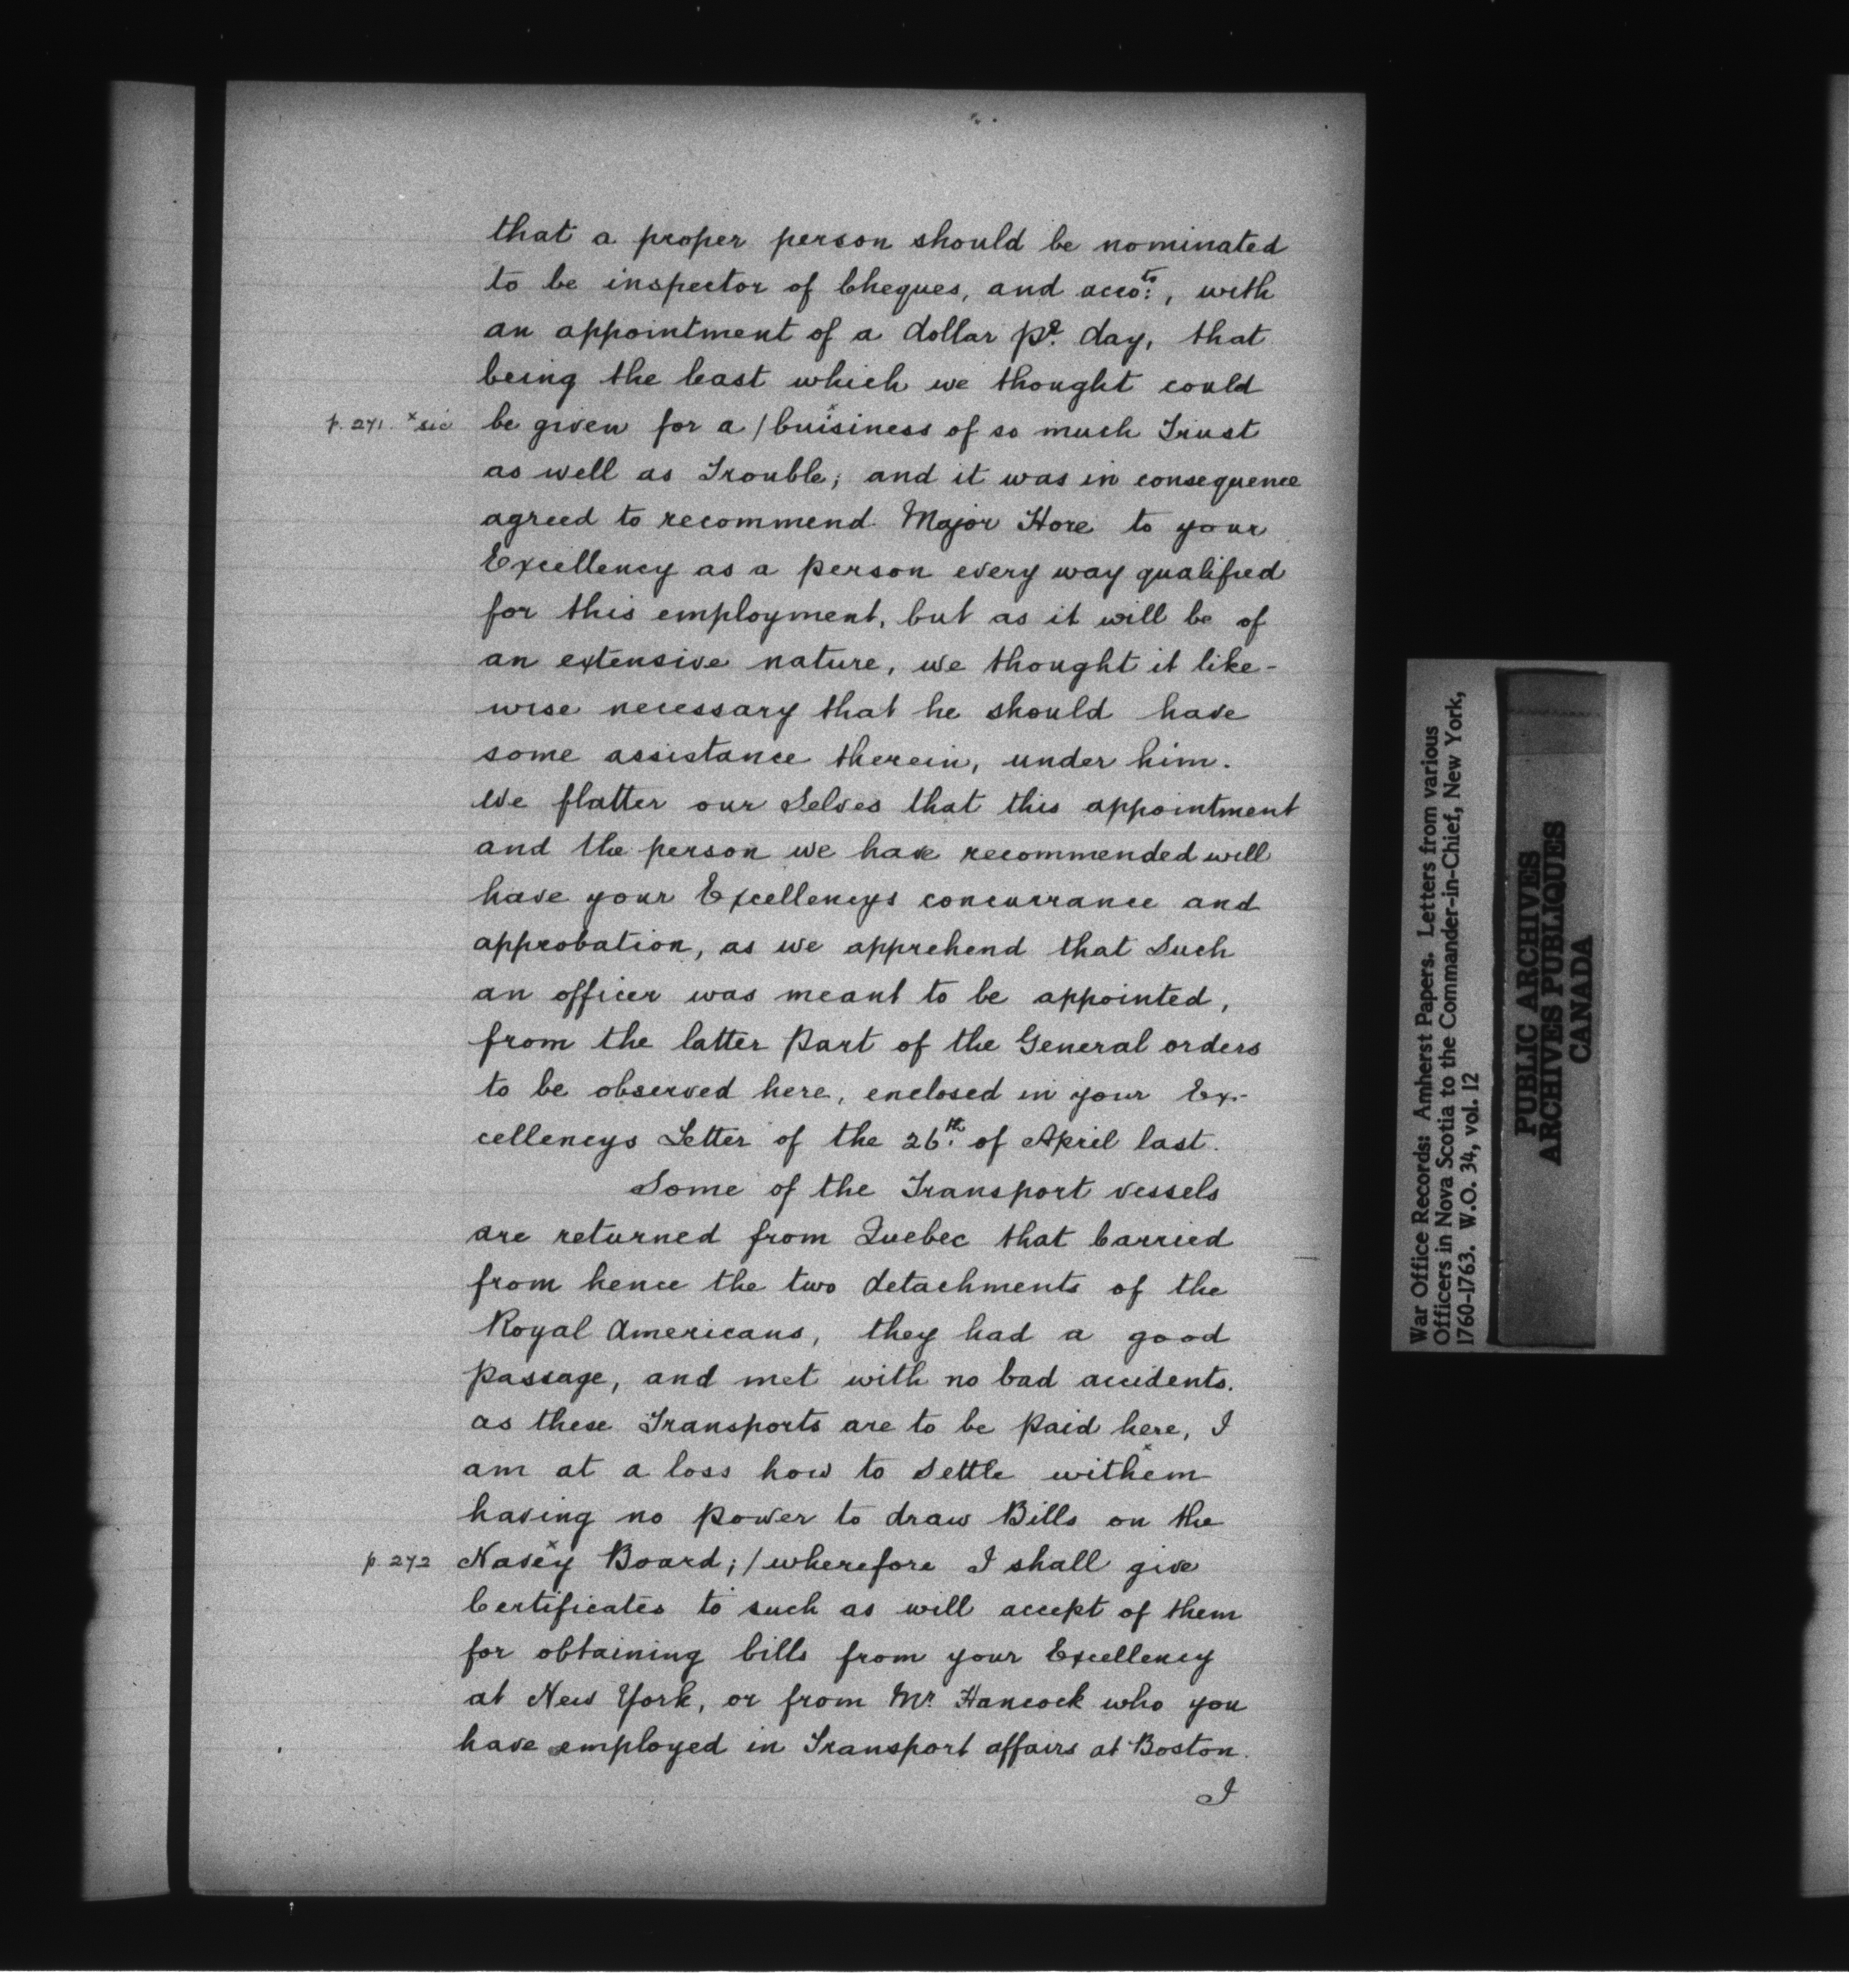 that a proper person should be nominated
to be inspector of Cheques, and acco:ts, with
an appointment of a dollar pr. day, that
being the least which we thought could
p. 271. xsic be given for a / buisiness x of so much Trust
as well as Trouble; and it was in consequence
agreed to recommend Major Hore to your
Excellency as a person every way qualified
for this employment, but as it will be of
an extensive nature, we thought it like-
wise necessary that he should have
some assistance therein, under him.
We flatter our Selves that this appointment
and the person we have recommended will
have your Excellencys concurrance and
approbation, as we apprehend that Such
an officer was meant to be appointed,
from the latter part of the General orders
to be observed here, enclosed in your Ex-
cellencys Letter of the 26th. of April last.
Some of the Transport vessels
are returned from Quebec that Carried
from hence the two detachments of the
Royal Americans, they had a good
passage, and met with no bad accidents.
as these Transports are to be paid here, I
am at a loss how to Settle withem x
having no power to draw Bills on the
p. 272 Navey x Board; / wherefore I shall give
Certificates to such as will accept of them
for obtaining bills from your Excellency
at New York, or from Mr. Hancock who you
have employed in Transport affairs at Boston.
I
War Office Records: Amherst Papers. Letters from various
Officers in Nova Scotia to the Commander-in-Chief, New York,
1760-1763. W.O. 34, vol. 12
PUBLIC ARCHIVES
ARCHIVES PUBLIQUES
CANADA